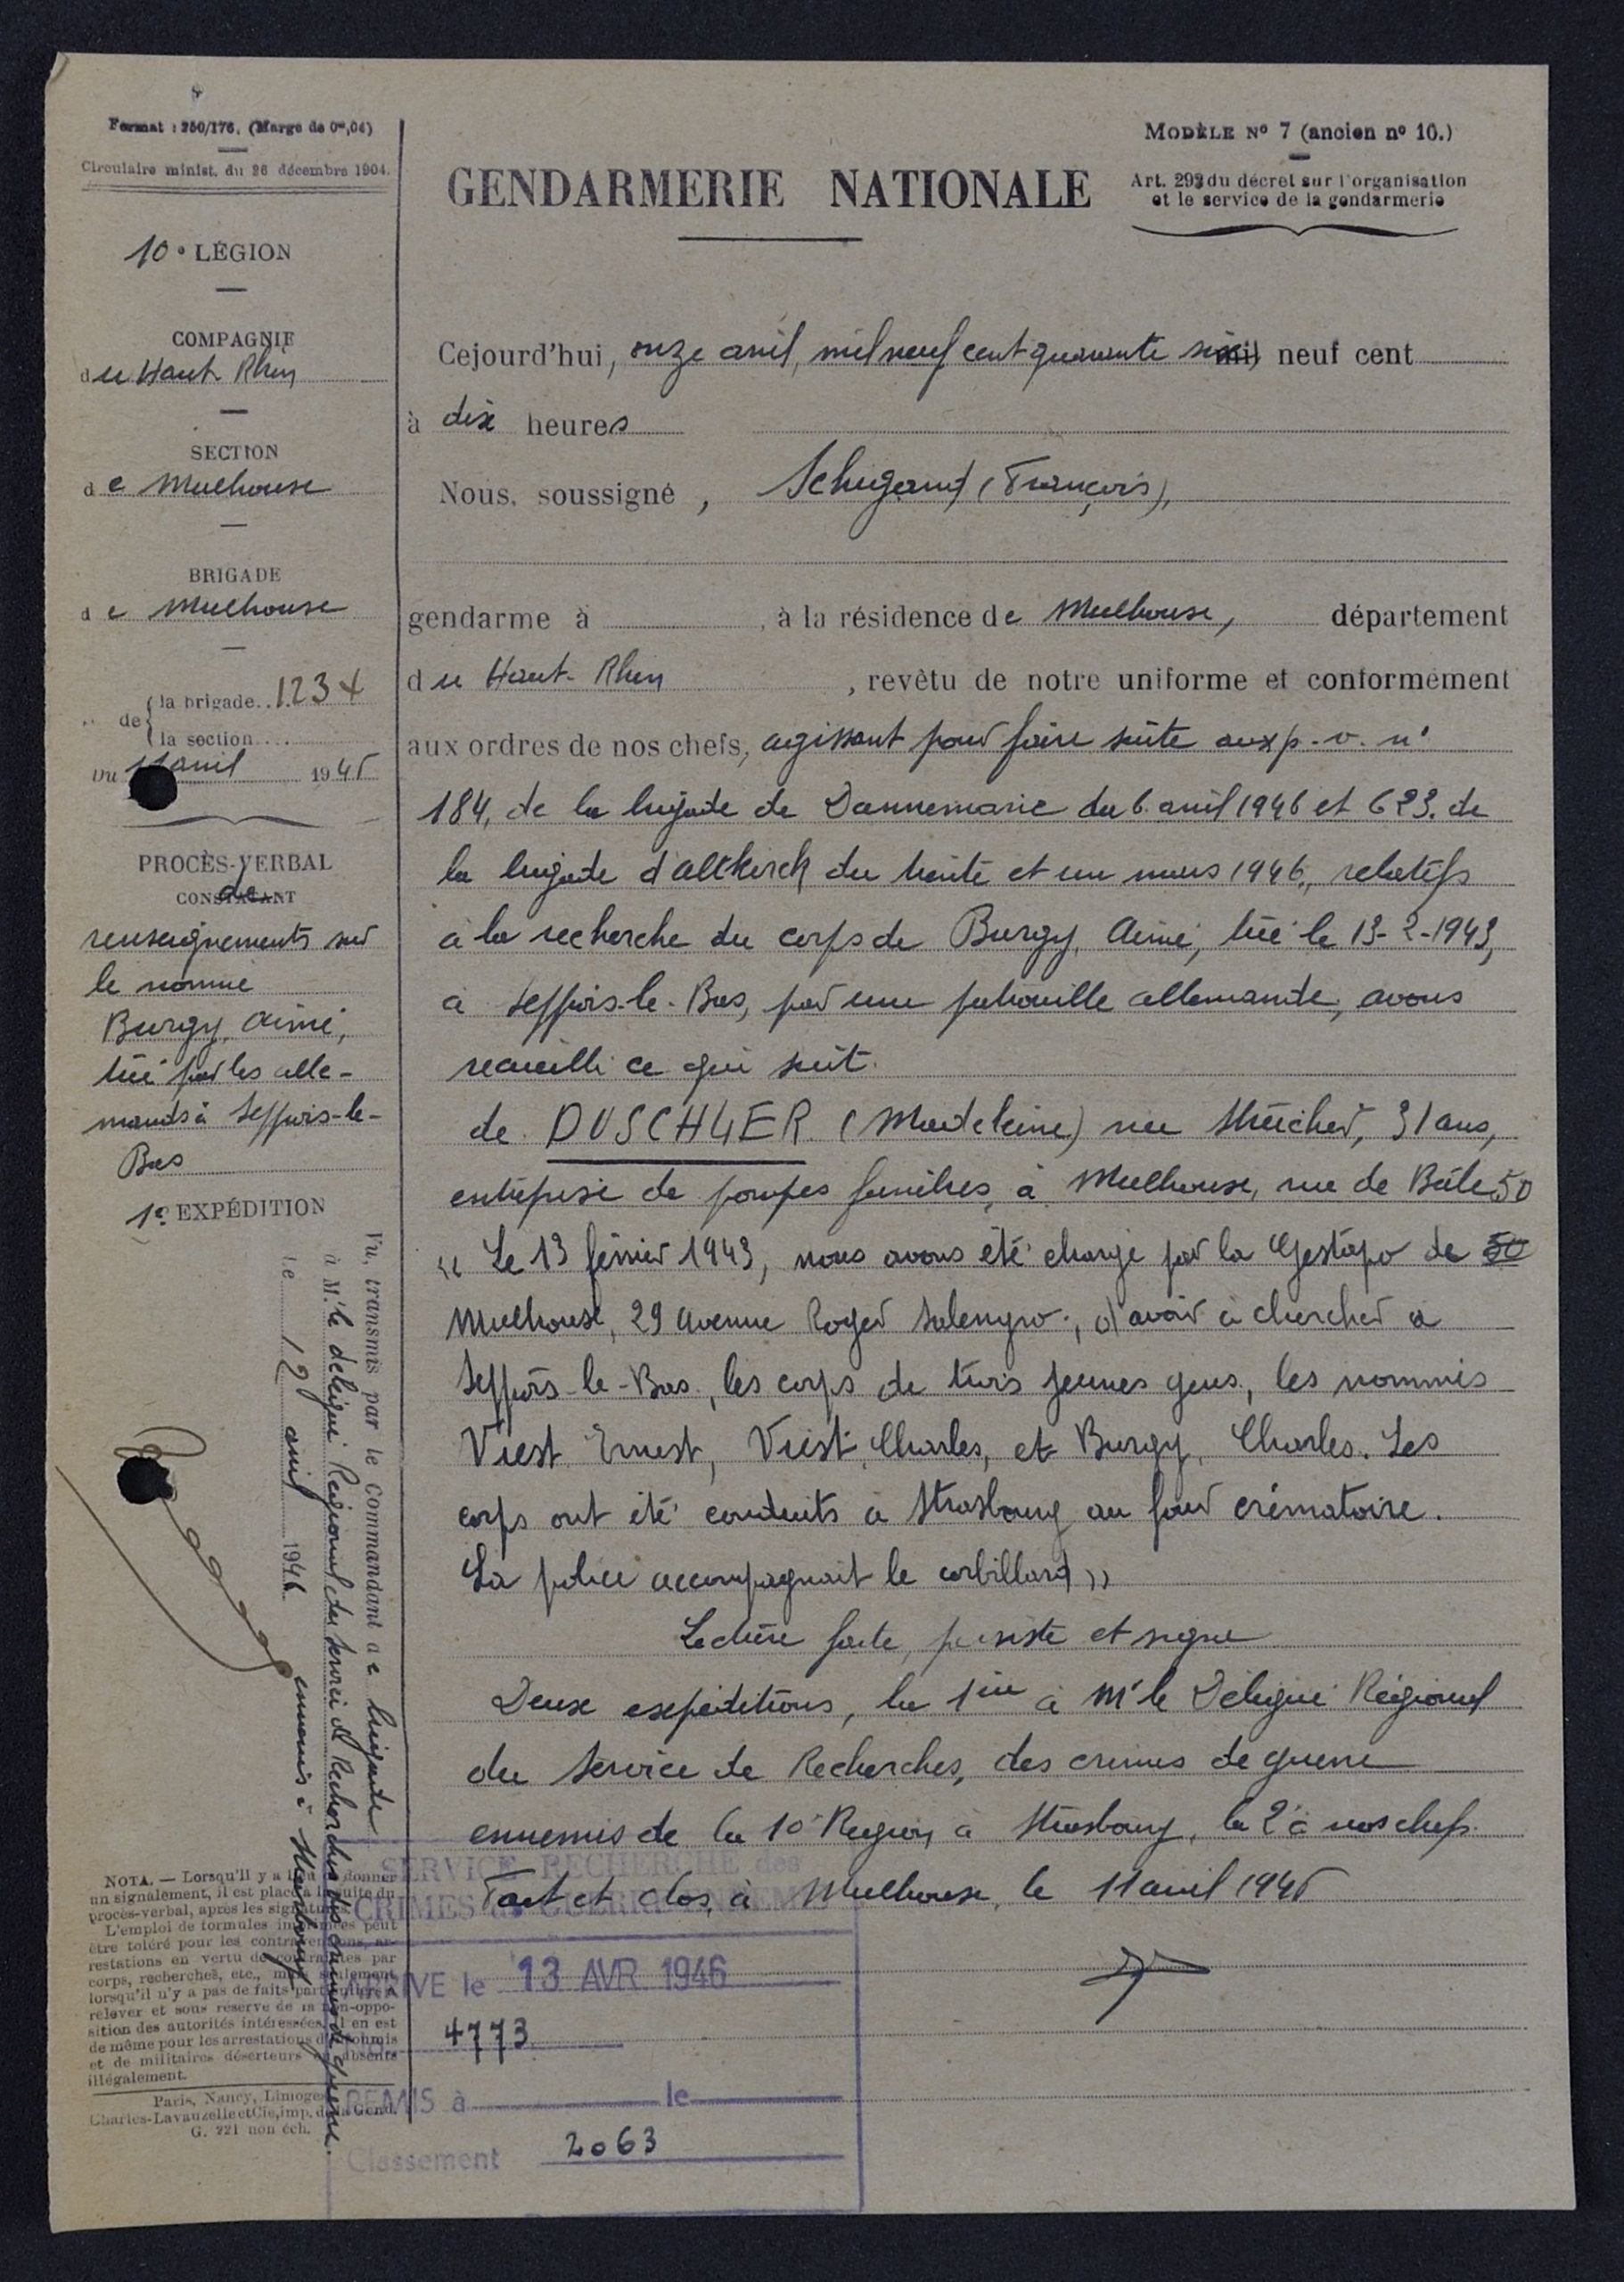 Format : 250/176. (Marge de 0m,04)
Circulaire minist. du 26 décembre 1904.
MODÈLE No 7 (ancien no 10.)
Art. 293 du décret sur l'organisation
et le service de la gendarmerie
GENDARMERIE NATIONALE
10e LÉGION
COMPAGNIE
du Haut Rhin
SECTION
de Mulhouse
BRIGADE
de Mulhouse
de la brigade.. 1234
la section....
Du 11 avril 1946
PROCÈS-VERBAL
CONSTATANT
de
renseignements sur
le nommé
Burgy, Aimé,
tué par les alle-
mands à Seppois-le-
Bas
1e EXPÉDITION
Vu, transmis par le Commandant de brigade
à M. le délégué Régional du Service de Recherches des crimes de guerre
ennemis à Strasbourg
Le 12 avril 1946.
Cejourd'hui, onze avril, mil neuf cent quarante six mil neuf cent
à dix heures
Nous, soussigné, (François),
gendarme à , à la résidence de Mulhouse, département
du Haut-Rhin , revêtu de notre uniforme et conformément
aux ordres de nos chefs, agissant pour faire suite aux p.-v. n°
184, de la brigade de Dannemarie du 6 avril 1946 et 623, de
la brigade d'Altkirch du trente et un mars 1946, relatifs
à la recherche du corps de Burgy, Aimé, tué le 13-2-1943,
à Seppois-le-Bas, par une patrouille allemande, avons
recueilli ce qui suit.
de DUSCHLER (Madeleine) née 31 ans,
entreprise de pompes funèbres, à Mulhouse, rue de Bâle 50
« Le 13 février 1943, nous avons été chargé par la Gestapo de 50
Mulhouse, 29 Avenue Roger Salengro, d'avoir à chercher à
Seppois-le-Bas, les corps de trois jeunes gens, les nommés
Viest Ernest, Viest, Charles, et Burgy, Charles. Les
corps ont été conduits à Strasbourg au four crématoire.
La police accompagnait le corbillard »
Lecture faite, persiste et signe
Deux expéditions, la 1ière à Mr le Délégué Régional
du Service de Recherches, des crimes de guerre
ennemis de la 10e Région, à Strasbourg, la 2e à nos chefs.
Fait et clos, à Mulhouse, le 11 avril 1946
SERVICE RECHERCHE des
CRIMES de GUERRE ENNEMIS
ARRIVÉ le 13 AVR 1946
4773
REMIS à le
Classement 2063
NOTA. — Lorsqu'il y a lieu de donner
un signalement, il est placé à la suite du
procès-verbal, après les signatures.
L'emploi de formules imprimées peut
être toléré pour les contraventions, ar-
restations en vertu de contraintes par
corps, recherches, etc., mais seulement
lorsqu'il n'y a pas de faits particuliers à
relever et sous réserve de la non-oppo-
sition des autorités intéressées. Il en est
de même pour les arrestations d'insoumis
et de militaires déserteurs ou absents
illégalement.
Paris, Nancy, Limoges
Charles-Lavauzelle et Cie, imp. de la Gend.
G. 221 non éch.